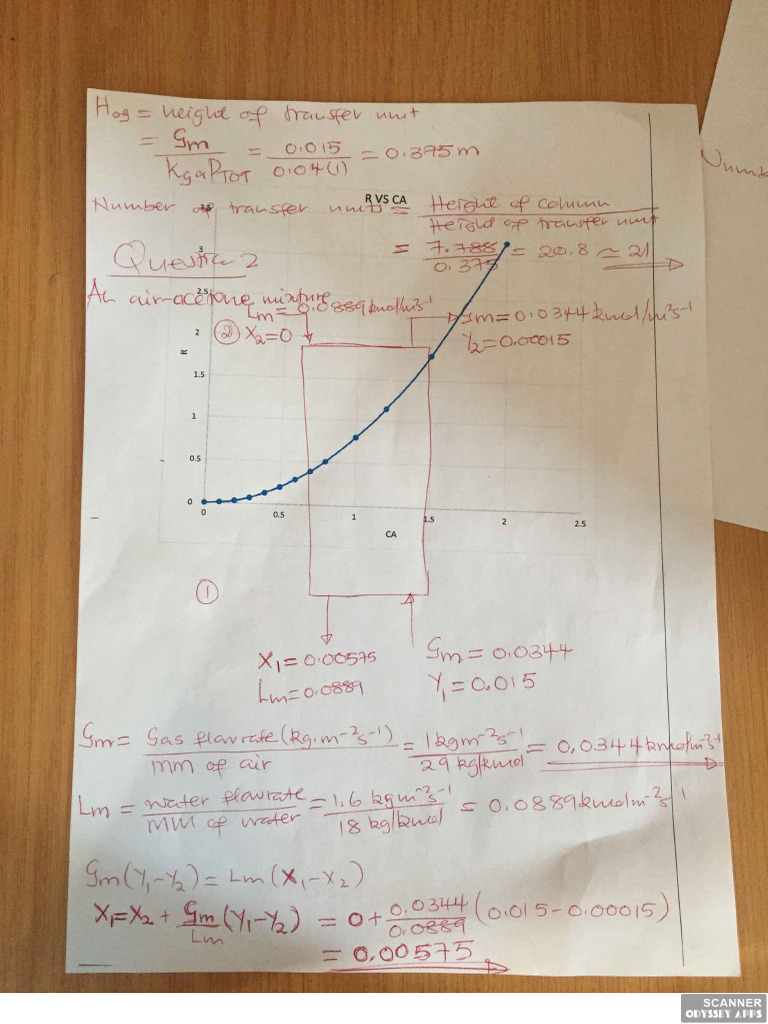 Hog = height of transfer unit
= Gm / KgaPTOT = 0.015 / 0.04(1) = 0.375m
R VS CA
Number of transfer units = Height of column / Height of transfer unit
= 7.788 / 0.375 = 20.8 ≃ 21
Numb
Question 2
An air-acetone mixture
Lm = 0.0889kmol/m²s⁻¹
② X₂=0
Gm=0.0344kmol/m²s⁻¹
Y₂=0.00015
3
2.5
2
1.5
1
0.5
0
R
0 0.5 1 1.5 2 2.5
CA
①
X₁ = 0.00575
Lm=0.0889
Gm = 0.0344
Y₁ = 0.015
Gm = Gas flowrate (kg.m⁻²s⁻¹) / MM of air = 1kgm⁻²s⁻¹ / 29 kg/kmol = 0.0344kmolm⁻²s⁻¹
Lm = water flowrate / MM of water = 1.6 kgm⁻²s⁻¹ / 18 kg/kmol = 0.0889kmolm⁻²s⁻¹
Gm(Y₁-Y₂) = Lm(X₁-X₂)
X₁=X₂ + Gm/Lm (Y₁-Y₂) = 0+ 0.0344/0.0889 (0.015-0.00015)
= 0.00575
SCANNER
ODYSSEY APPS